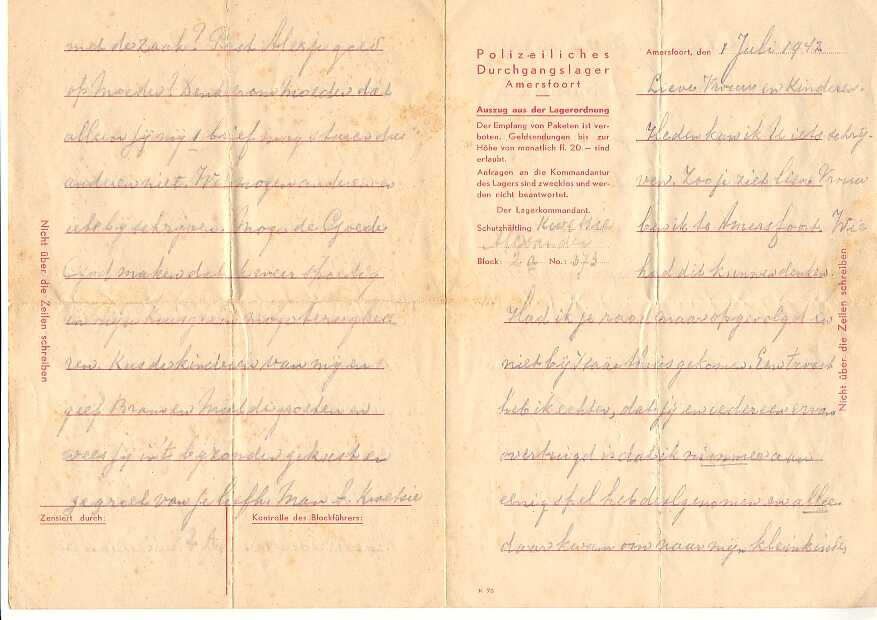 met de zaak? Past Alexje goed
op Moeder? Denk er om Moeder dat
alleen jij mij 1 brief mag sturen de
anderen niet. We mogen anderen er
niet bij schrijven. Mag de Goede
God maken dat ik weer spoedig
in mijn huisgezin mag terugkee
ren. Kus de kinderen van mij en
geef Bram en Miel de groeten en
wees jij in't bezonder gekust en
gegroet van je liefh. Man A. Kwetsie
Zensiert durch:
Kontrolle des Blockführers:
Nicht über die Zeilen schreiben
Polizeiliches
Durchgangslager
Amersfoort
Auszug aus der Lagerordnung
Der Empfang von Paketen ist ver-
boten. Geldsendungen bis zur
Höhe von monatlich fl. 20 — sind
erlaubt.
Anfragen an die Kommandantur
des Lagers sind zwecklos und wer-
den nicht beantwortet.
Der Lagerkommandant.
Schutzhäftling Kwetsie
Alexander
Block: 2 a No.: 373
Amersfoort, den 1 Juli 1942
Lieve Vrouw en Kinderen.
Heden kan ik U iets schrij-
ven. Zooje ziet lieve Vrouw
ben ik te Amersfoort. Wie
had dit kunnen denken.
Had ik je raad maar opgevolgd en
niet bij thuis gekomen. Een troost
heb ik echter, dat jij en iedereen ervan
overtuigd is dat ik nimmer aan
eenig spel heb deelgenomen en alleen
daar kwam om naar mijn kleinkind
Nicht über die Zeilen schreiben
K 76